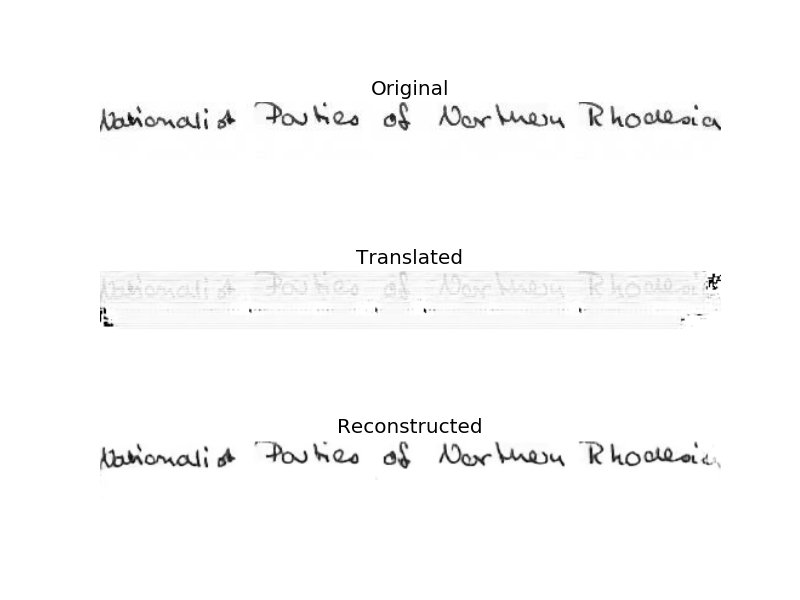 Original
Nationalist Parties of Northern Rhodesia
Translated
Nationalist Parties of Northern Rhodesi
Reconstructed
Nationalist Parties of Northern Rhodesia